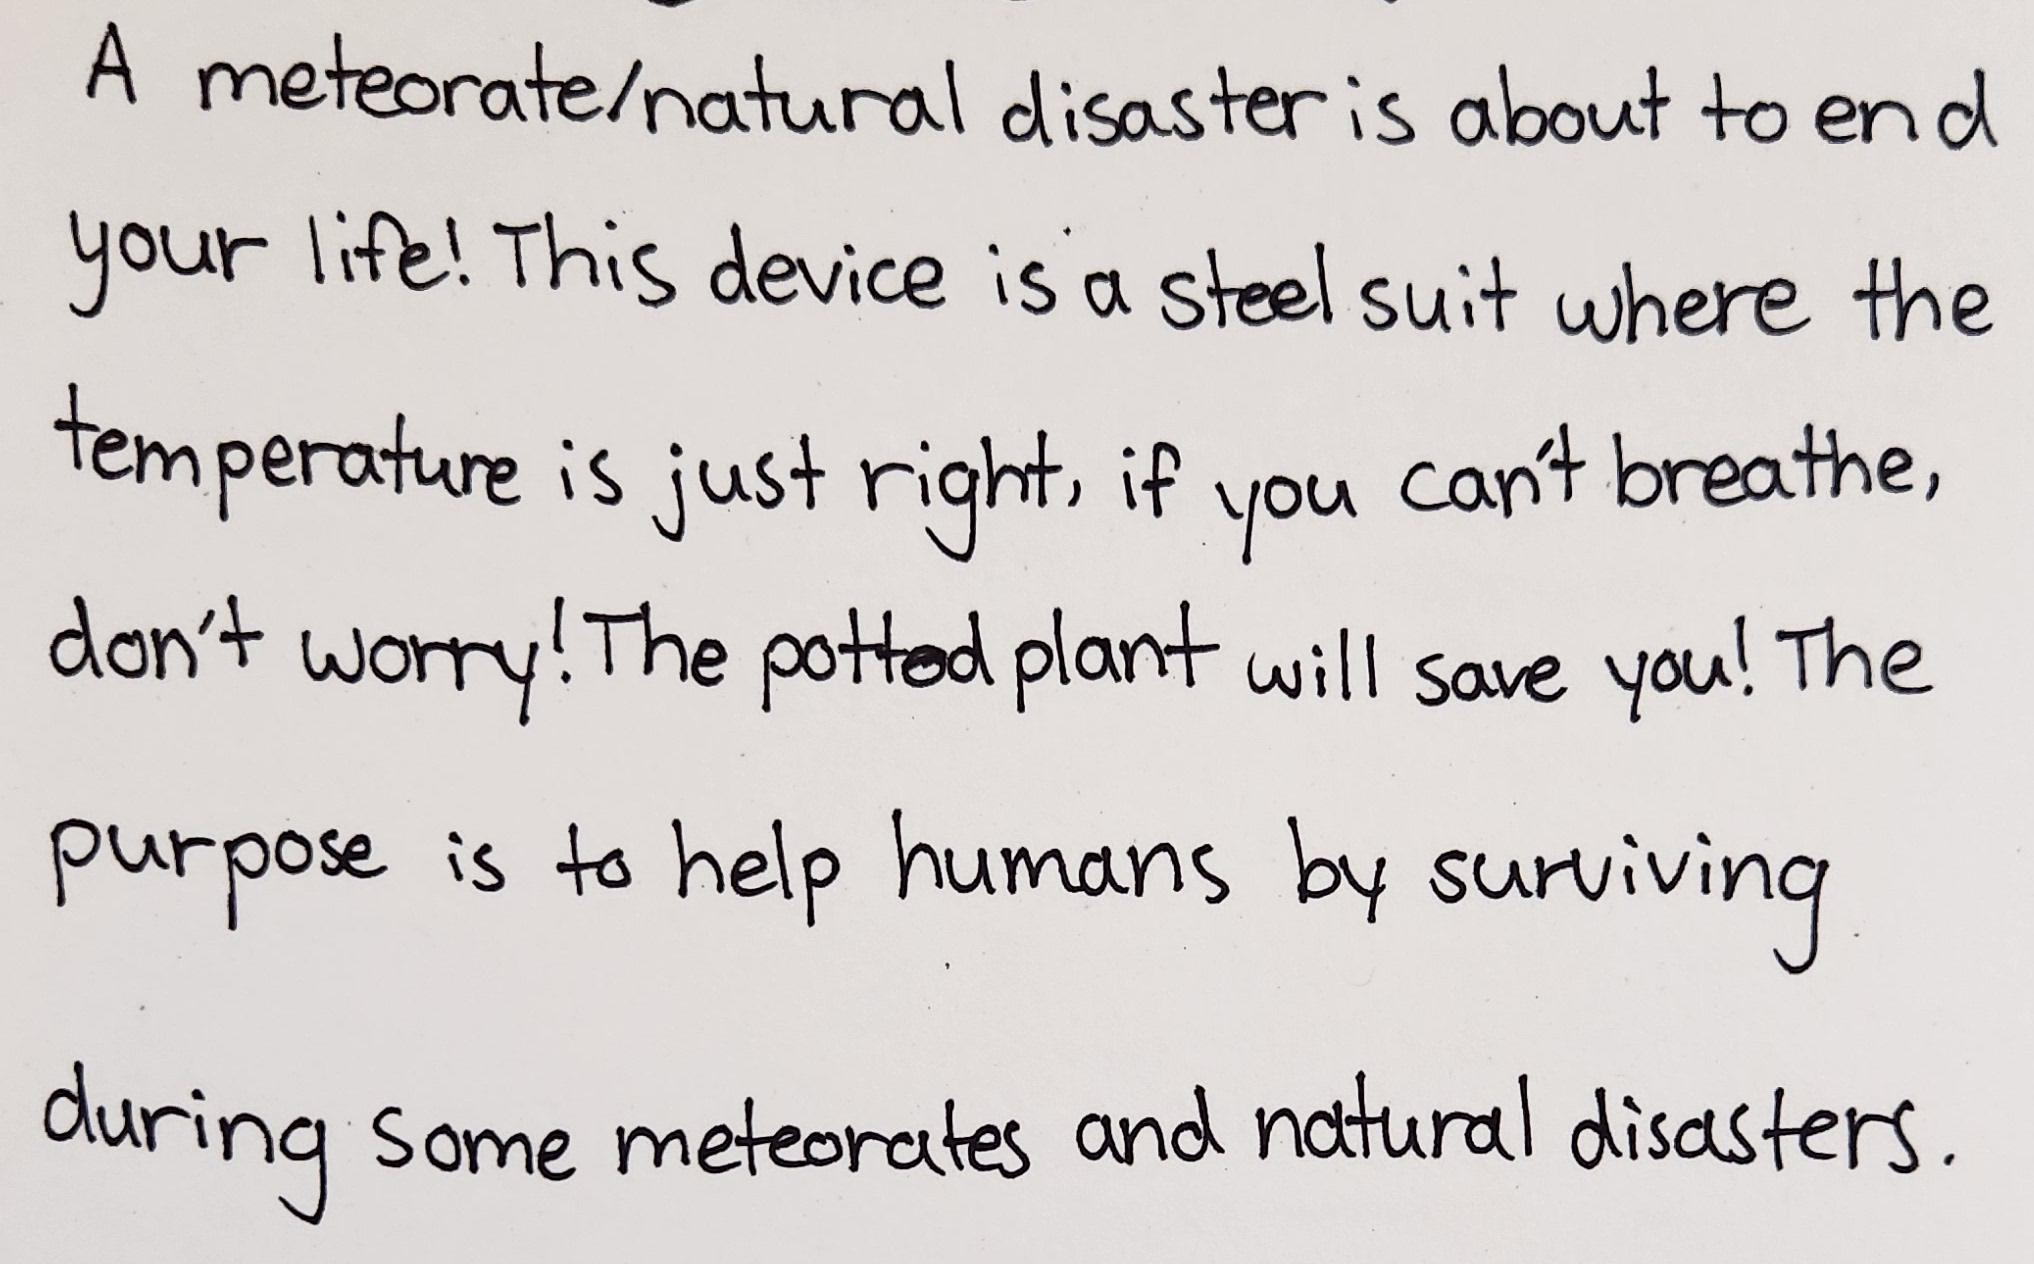 A meteorate/natural disaster is about to end
your life! This device is a steel suit where the
temperature is just right, if you can't breathe,
don't worry! The potted plant will save you! The
purpose is to help humans by surviving
during some meteorates and natural disasters.